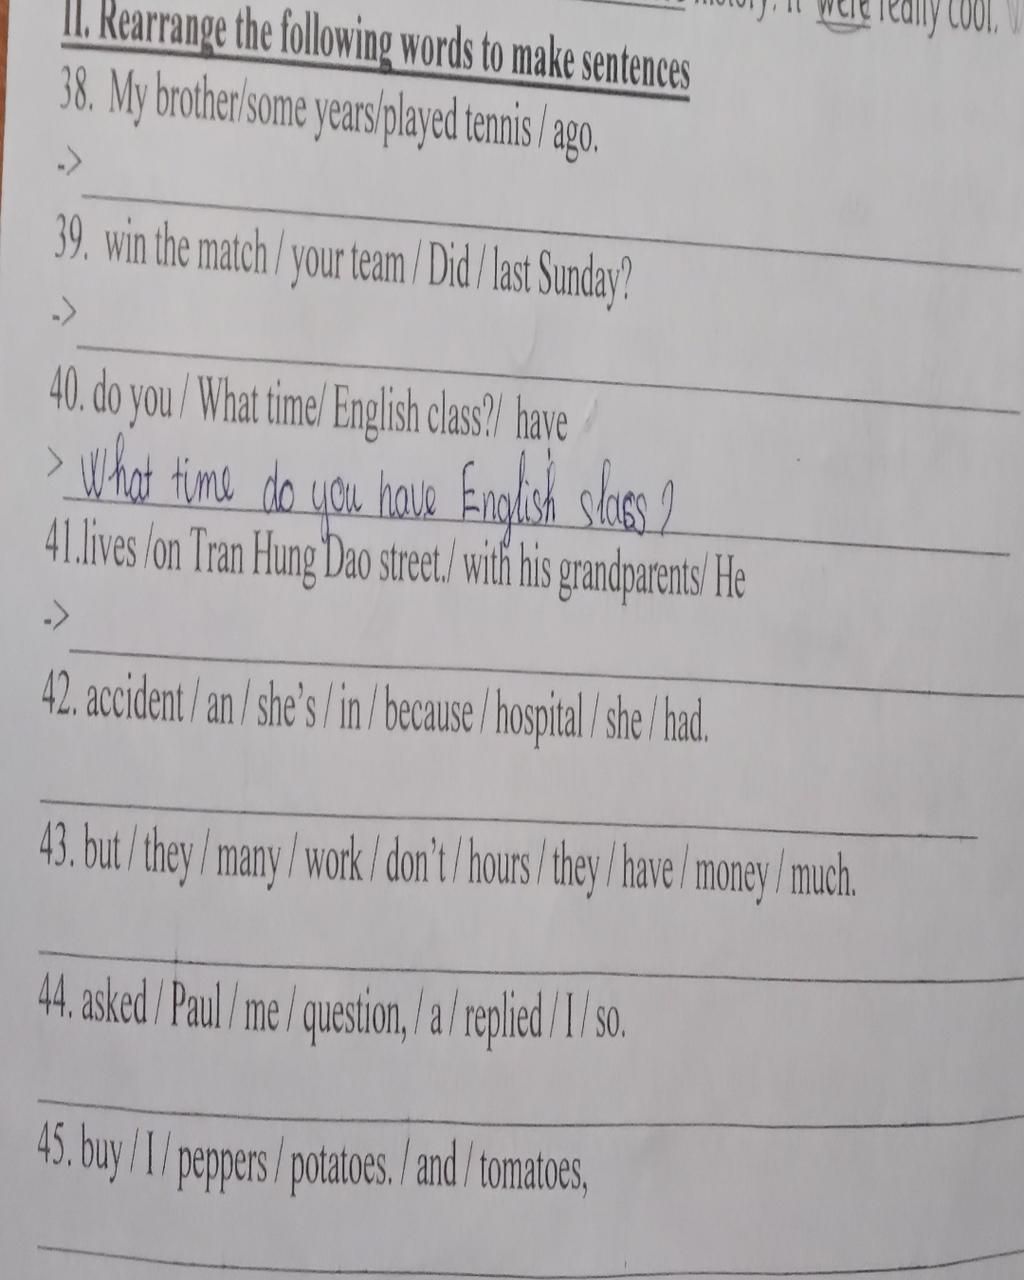 were really cool.
II. Rearrange the following words to make sentences
38. My brother/some years/played tennis / ago.
->
39. win the match / your team / Did / last Sunday?
->
40. do you / What time/ English class?/ have
> What time do you have English slass?
41.lives /on Tran Hung Dao street./ with his grandparents/ He
->
42. accident / an / she's / in / because / hospital / she / had.
43. but / they / many / work / don't / hours / they / have / money / much.
44. asked / Paul / me / question, / a / replied / I / so.
45. buy / I / peppers / potatoes. / and / tomatoes,